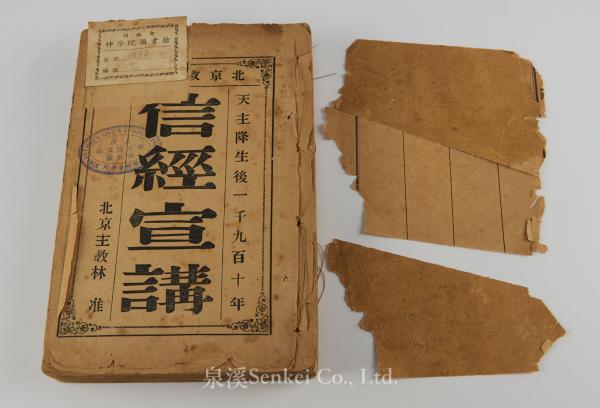 神學院圖書館
北京教
天主降生後一千九百十年
信經宣講
北京主教林 准
泉溪Senkei Co., Ltd.